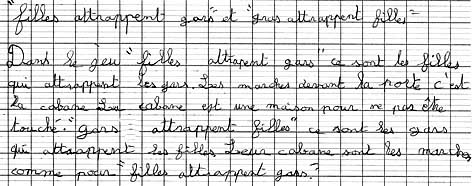 "filles attrappent gars" et "gras attrappent filles"
Dans le jeu "filles attrapent gars" ce sont les filles
qui attrappent les gars. Les marches devant la porte c'est
la cabane La cabane est une maison pour ne pas être
touché. "gars attrappent filles" ce sont les gars
qui attrappent les filles Leur cabane sont les marches
comme pour "filles attrappent gars."